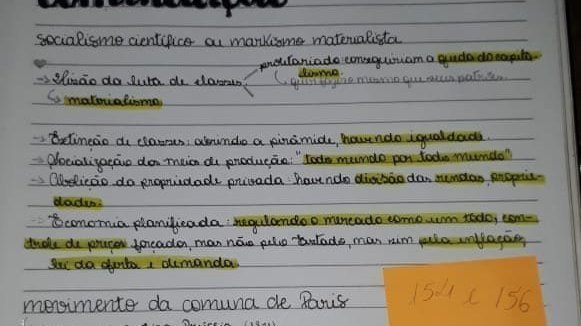 comunicação
socialismo científico ou marxismo materialista
proletariado conseguiriam a queda do capita-
lismo.
→ Visão da luta de classes
↳ materialismo
→ Extinção de classes: abrindo a pirâmide, havendo igualdade.
→ Socialização dos meios de produção: "todo mundo por todo mundo"
→ Abolição da propriedade privada: havendo divisão das rendas, proprie-
dades.
→ Economia planificada: regulando o mercado como um todo, con-
trole de preços forçados, mas não pelo Estado, mas sim pela inflação,
lei da oferta e demanda.
movimento da comuna de Paris
154 e 156